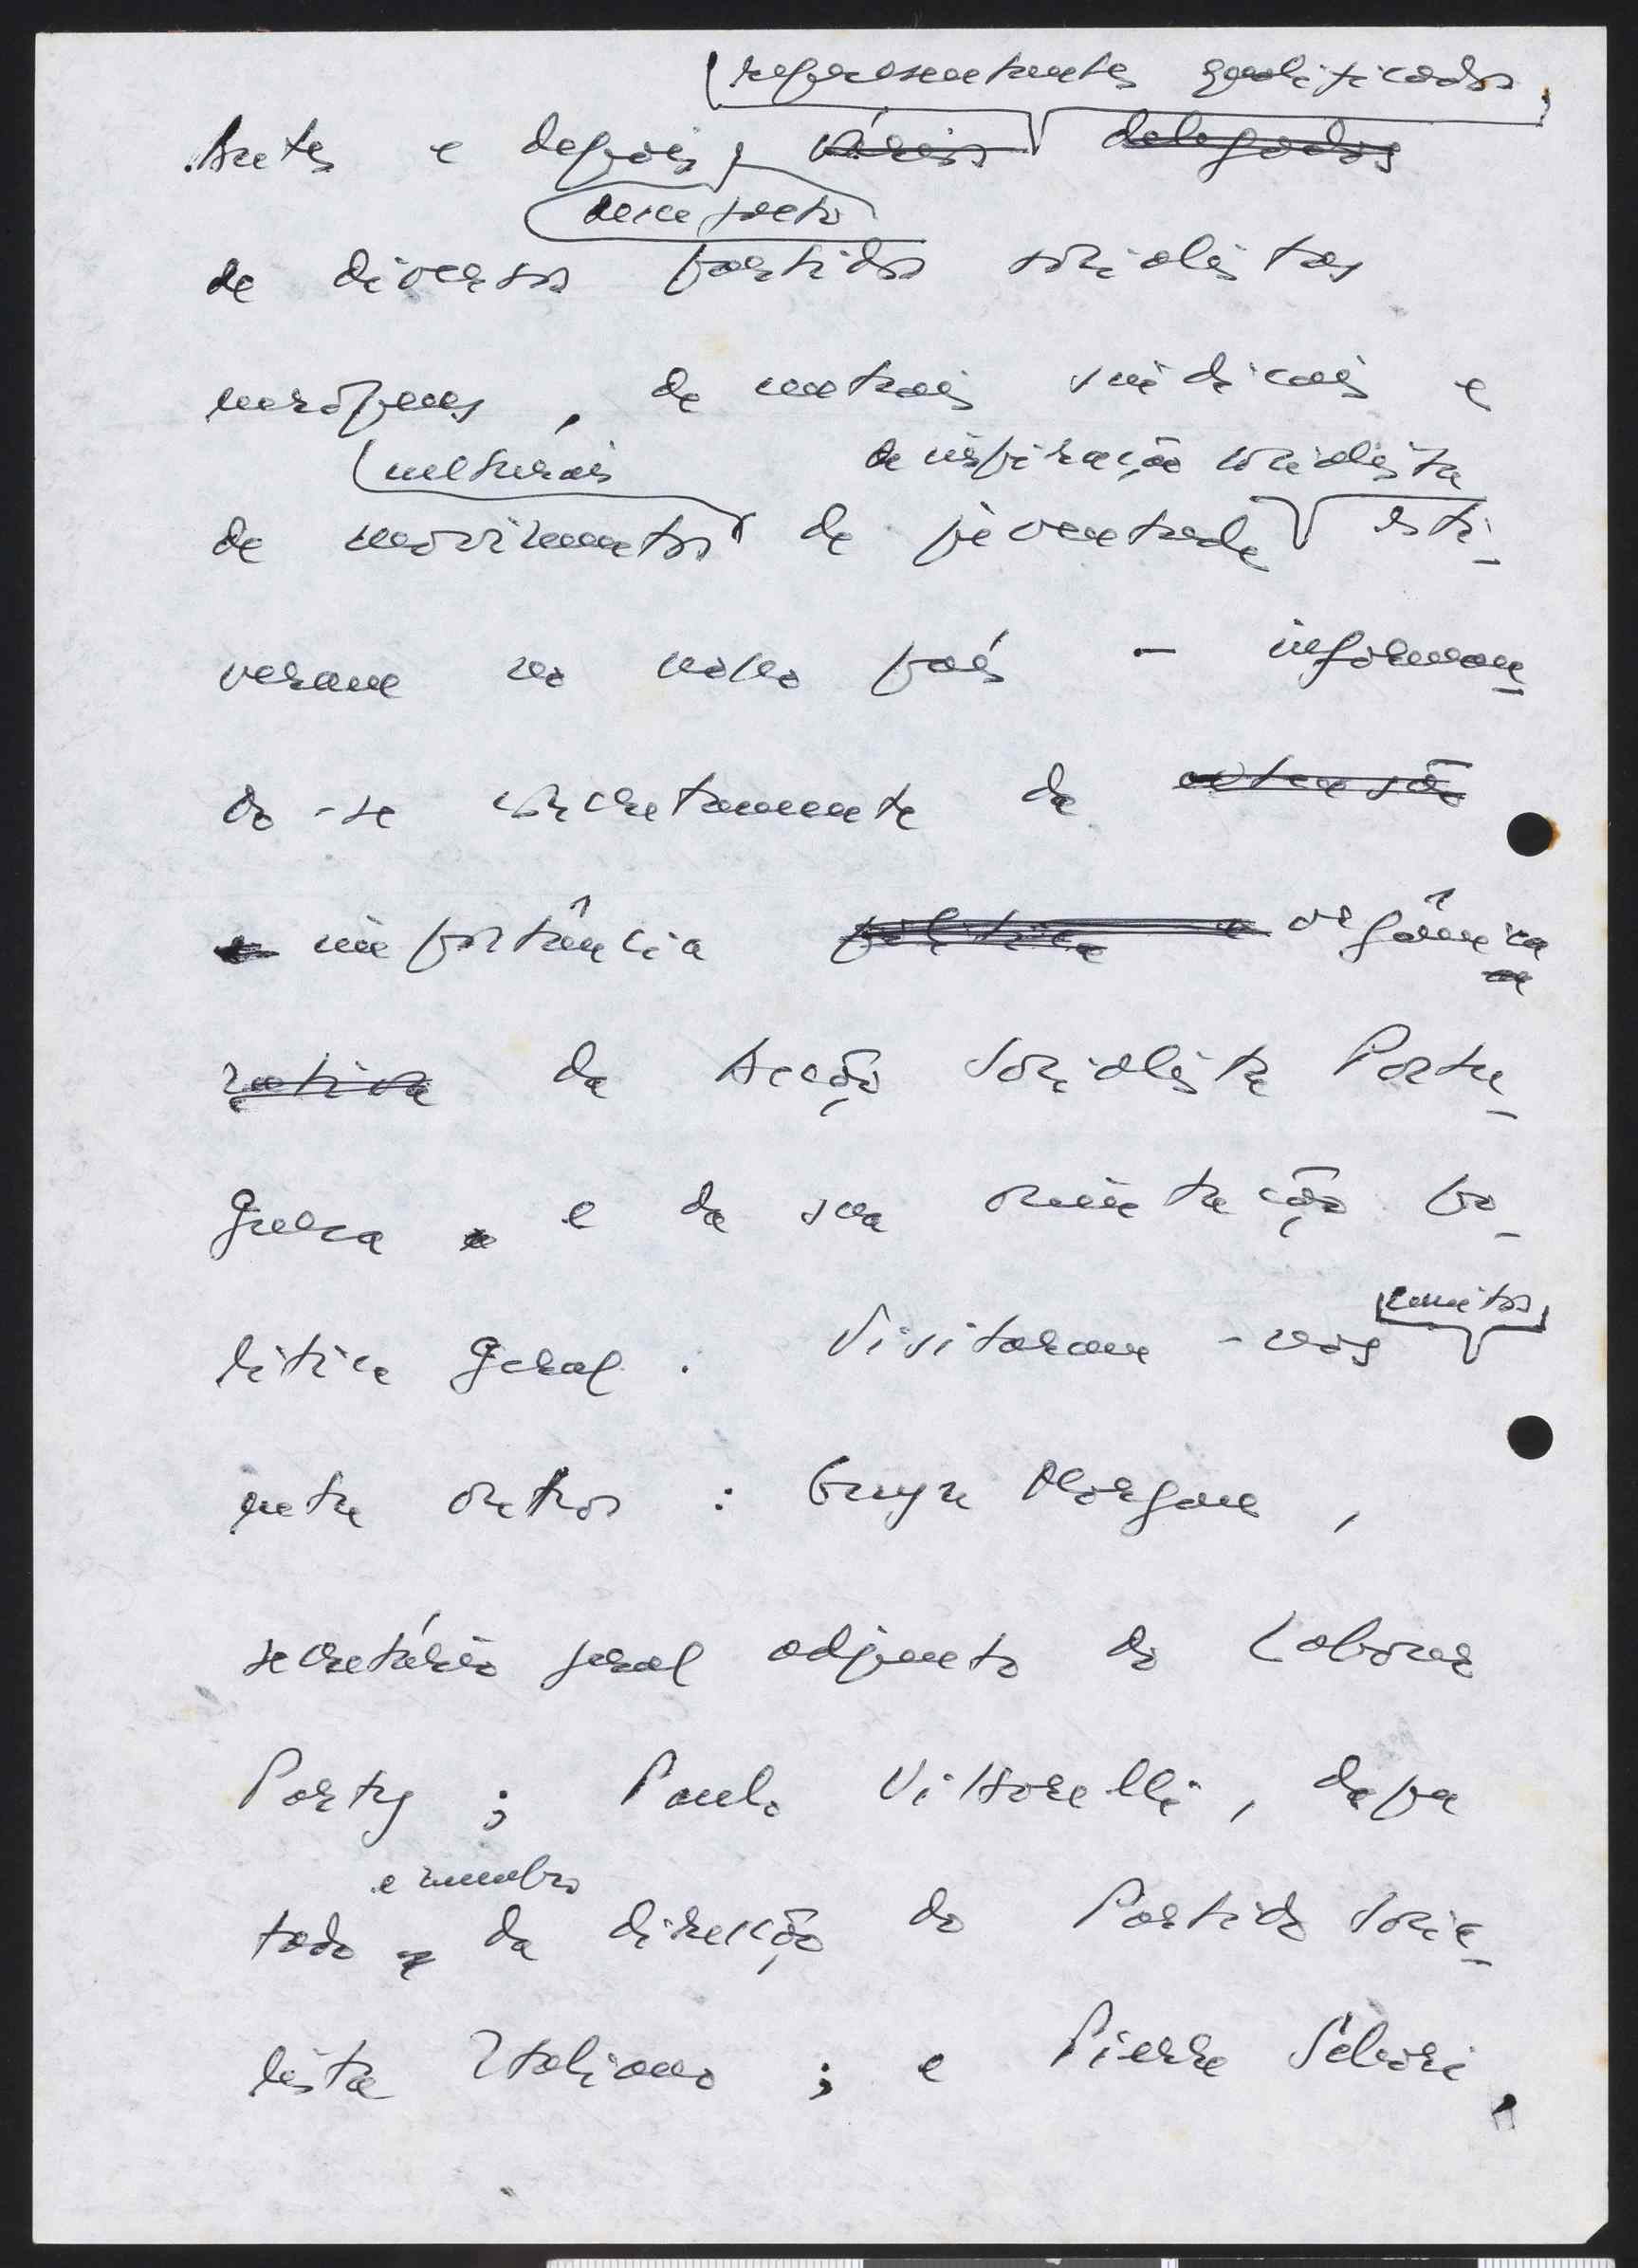 representantes qualificados,
Antes e depois, vários delegados
desse facto
de diversos partidos socialistas
europeus, de centrais sindicais e
culturais de inspiração socialista
de movimentos de juventude esti-
veram no nosso país - informan-
do-se concretamente da extensão
e importância política e orgânica
da Acção Socialista Portu-
guesa e da sua orientação po-
lítica geral. Visitaram-nos
entre outros: Gwyn Morgan,
secretário geral adjunto do Labour
Party; Paulo Vittorelli, depu
e membro
tado da direcção do Partido Socia-
lista Italiano; e Pierre Schori,